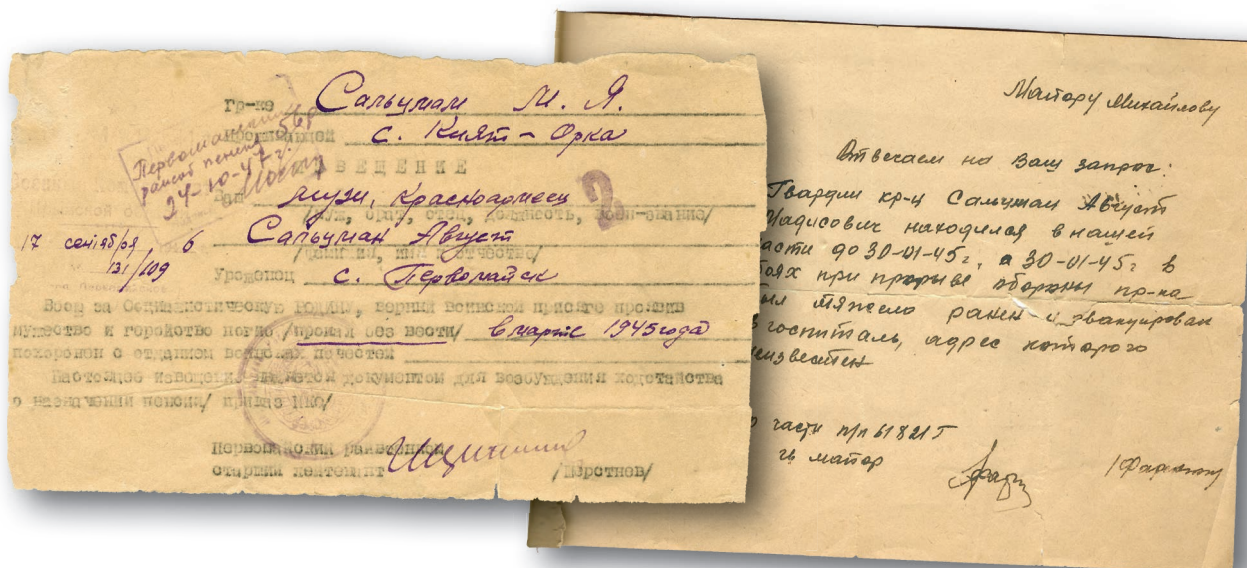 Гр-ке Сальцман М. Я.
с. Кият-Орка
Первомайский
24-10-47 г.
ИЗВЕЩЕНИЕ
Ваш муж, красноармеец
/муж, брат, отец, должность, воен-звание/
17 сентября, 6 Сальцман Август
/фамилия, имя и отчество/
131/109
Уроженец с. Первомайск
Воен за Социалистическую Родину, верный воинской присяге проявив
мужество и геройство погиб /пропал без вести/ в марте 1945 года
похоронен с отданием воинских почестей
Настоящее извещение является документом для возбуждения ходатайства
о назначении пенсии/ приказ НКО/
Первомайский райвоенком
старший лейтенант /Шерстнев/
2
Майору Михайлову
Отвечаем на Ваш запрос:
Гвардии кр-ц Сальцман Август
находился в нашей
асти до 30-01-45 г, а 30-01-45 г в
оях при прорыве обороны пр-ка
был тяжело ранен и эвакуирован
госпиталь, адрес которого
неизвестен
части п/п 61821 Т
майор